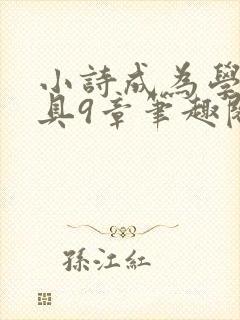 小詩成為學
具9章筆趣閣
孫江紅